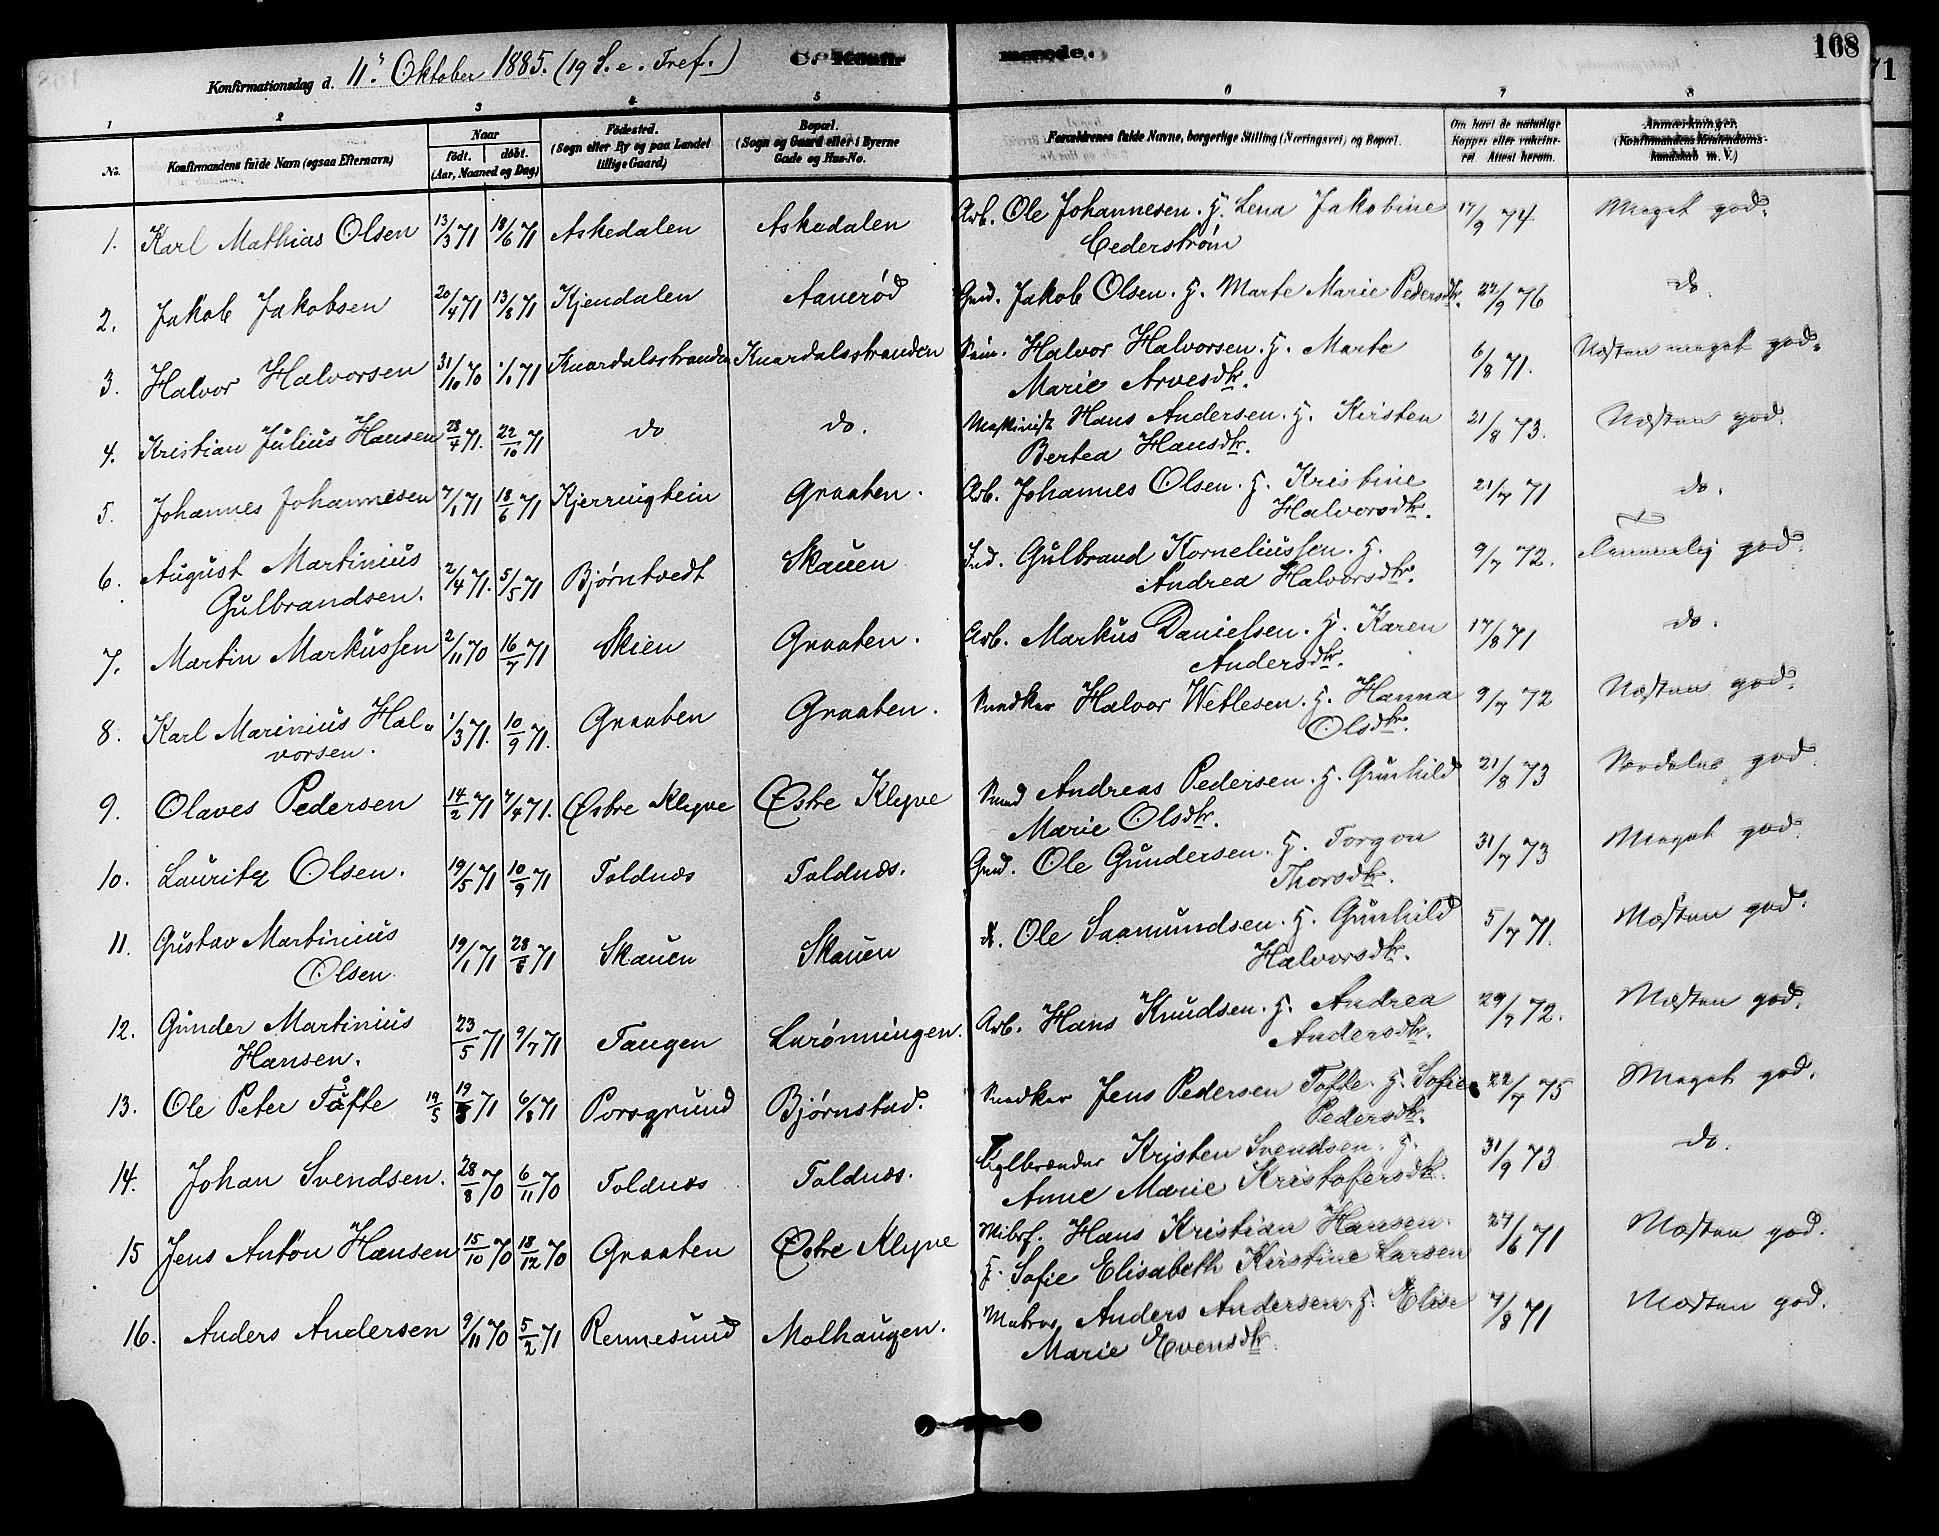 Konfirmationsdag d. 11' Oktober 1885. (19 S. e. Tref.) Konfirmerede. 168
71
1 2 3 4 5 6 7 8
No. Konfirmandens fulde Navn (ogsaa Efternavn) Naar født. døbt. (Aar, Maaned og Dag) Fødested. (Sogn eller By og paa Landet tillige Gaard) Bopæl. (Sogn og Gaard eller i Byerne Gade og Hus-No. Forældrenes fulde Navne, borgerlige Stilling (Næringsvei) og Bopæl. Om havt de naturlige Kopper eller vakcineret. Attest herom. Anmærkninger (Konfirmandens Kristendomskundskab m. V.)
1. Karl Mathias Olsen 13/3 71 18/6 71 Askedalen Askedalen Arb. Ole Johannesen. H. Lena Jakobine 17/9 74 Meget god.
Cederstrøm
2. Jakob Jakobsen 20/4 71 13/8 71 Kjendalen Aanerød Gmd. Jakob Olsen. H. Marte Marie Pedersdtr. 22/9 76 do
3. Halvor Halvorsen 31/10 70 1/1 71 Knardalsstranden Knardalsstranden Søm. Halvor Halvorsen. H. Marte 6/8 71. Næsten meget god.
Marie Arvesdtr.
4. Kristian Julius Hansen 23/4 71. 22/10 71 do do. Maskinist Hans Andersen. H. Kirsten 21/8 73. Næsten god.
Bertea Hansdtr.
5. Johannes Johannesen 7/1 71 18/6 71 Kjerringtein Graaten. Arb. Johannes Olsen. H. Kristine 21/7 71 do.
Halvorsdtr.
6. August Martinius 2/4 71. 5/5 71 Bjørntvedt Skauen Ind. Gulbrand Korneliussen. H. 9/7 72. Temmelig god.
Gulbrandsen. Andrea Halvorsdtr.
7. Martin Markussen 2/11 70 16/7 71 Skien Graaten. Arb. Markus Danielsen. H. Karen 17/8 71 do.
Andersdtr.
8. Karl Marinius Hal- 1/3 71. 10/9 71. Graaten Graaten. Snedker Halvor Wetlesen. H. Hanna 9/7 72 Næsten god.
vorsen. Olsdtr.
9. Olaves Pedersen 14/2 71 7/4 71. Østre Klyve Østre Klyve Smed Andreas Pedersen. H. Gunhild 21/8 73 Særdeles god.
Marie Olsdtr.
10. Lauritz Olsen. 19/5 71 10/9 71 Toldnæs Toldnæs. Gmd. Ole Gundersen. H. Torgon 31/7 73 Meget god.
Thorsdtr.
11. Gustav Martinius 19/1 71 28/5 71 Skauen Skauen d. Ole Saamundsen. H. Gunhild 5/7 71. Næsten god.
Olsen. Halvorsdtr.
12. Gunder Martinius 23/5 71 9/7 71 Tangen Lurønningen. Arb. Hans Knudsen. H. Andrea 29/7 72. Næsten god.
Hansen. Andersdtr.
13. Ole Peter Tåfte 19/5 19/5 71 6/8 71 Porsgrund Bjørnstad. Snedker Jens Pedersen Tofte. H. Sofie 22/7 75 Meget god.
Pedersdtr.
14. Johan Svendsen. 28/8 70 6/11 70 Toldnæs Toldnæs. Teglbrænder Kristen Svendsen. H. 31/9 73 do.
Anne Marie Kristofersdtr.
15 Jens Anton Hansen 15/10 70 18/12 70 Graaten Østre Klyve Hans Kristian Hansen. 27/6 71 Næsten god.
H. Sofie Elisabeth Kirstine Larsen
16. Anders Andersen 9/11 70 5/2 71 Rennesund Molhaugen. Matros Anders Andersen. H. Elise 7/8 71 Næsten god.
Marie Evensdtr.